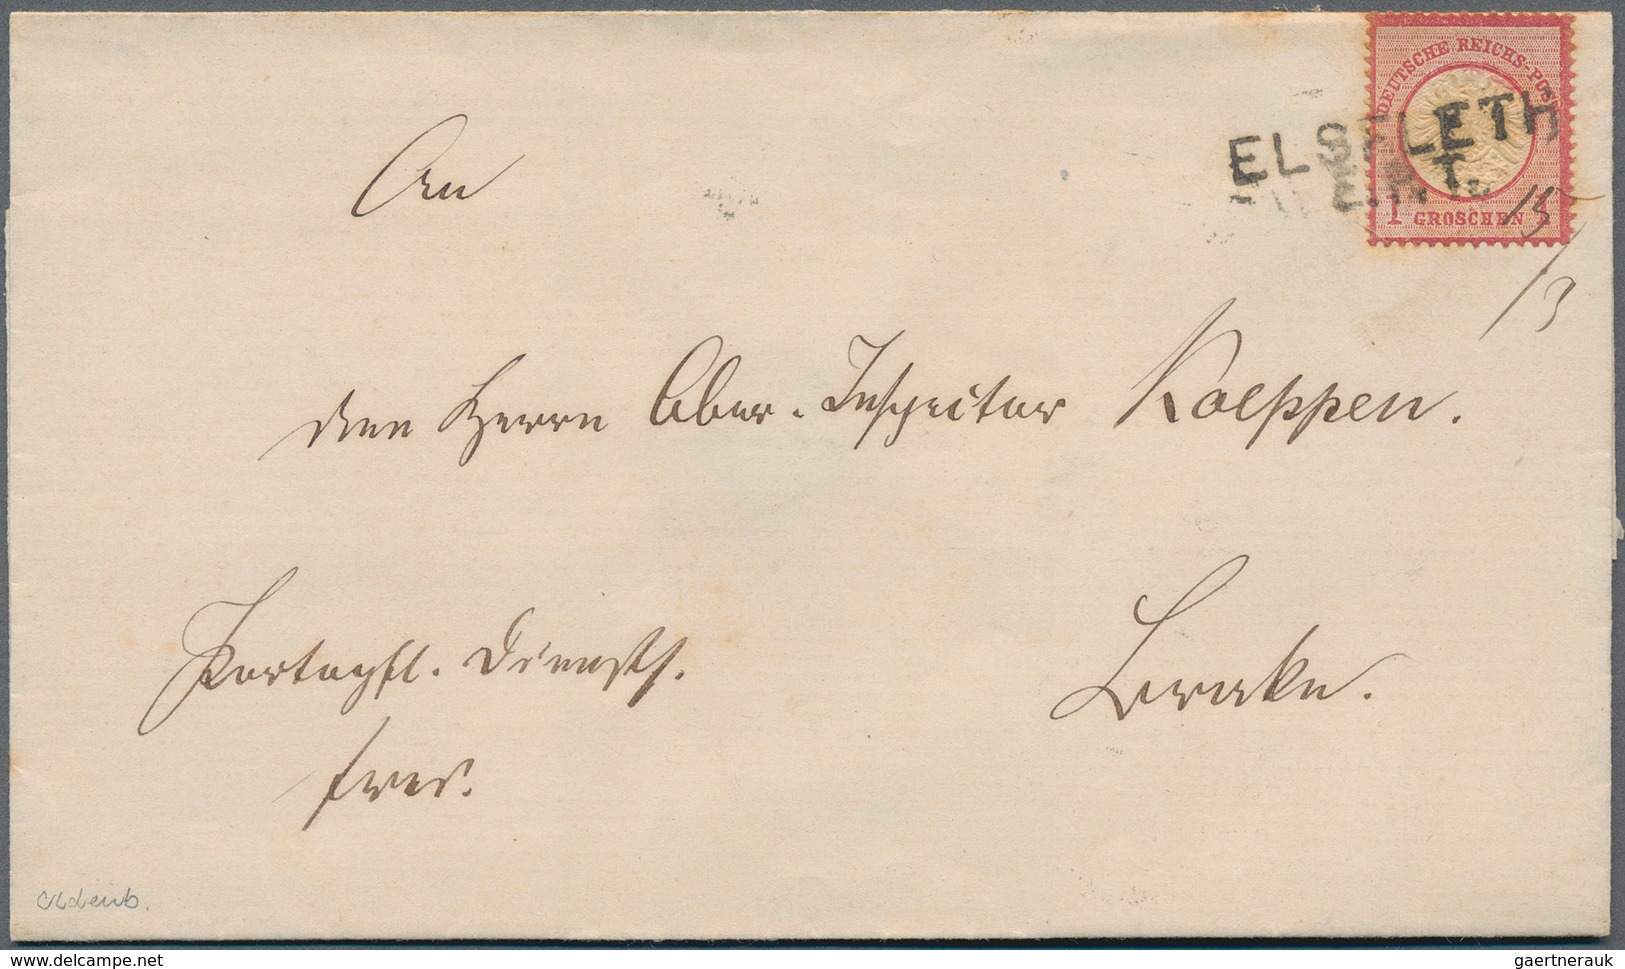 DEUTSCHE REICHS-POST
ELSFLETH
1 GROSCHEN 1
15/3
An
den Herrn Ober-Inspector Koeppen.
Portopfl. Diensts.
Brake.
frei.
oldenb.
www.delcampe.net
gaertnerauk